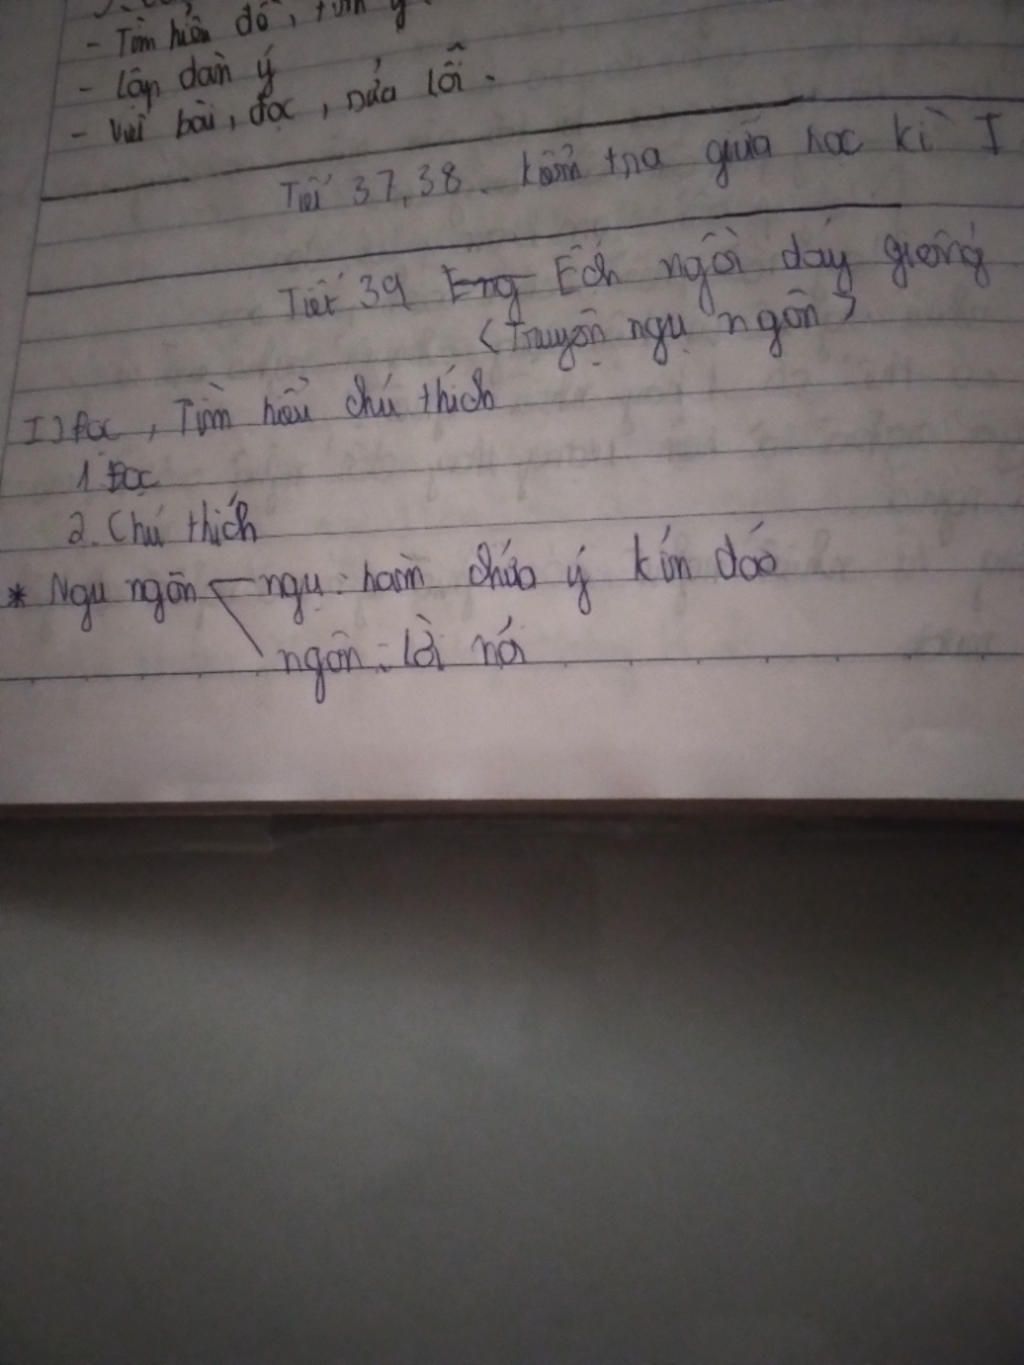 - Tìm hiểu đề, tìm ý
- Lập dàn ý
- Viết bài, đọc, sửa lỗi.
Tiết 37, 38. Kiểm tra giữa học kì I
Tiết 39 Eng Ếch ngồi đáy giếng
(Truyện ngụ ngôn)
I) Đọc, Tìm hiểu chú thích
1. Đọc
2. Chú thích
* Ngụ ngôn ngụ: hàm chứa ý kín đáo
ngôn: lời nói